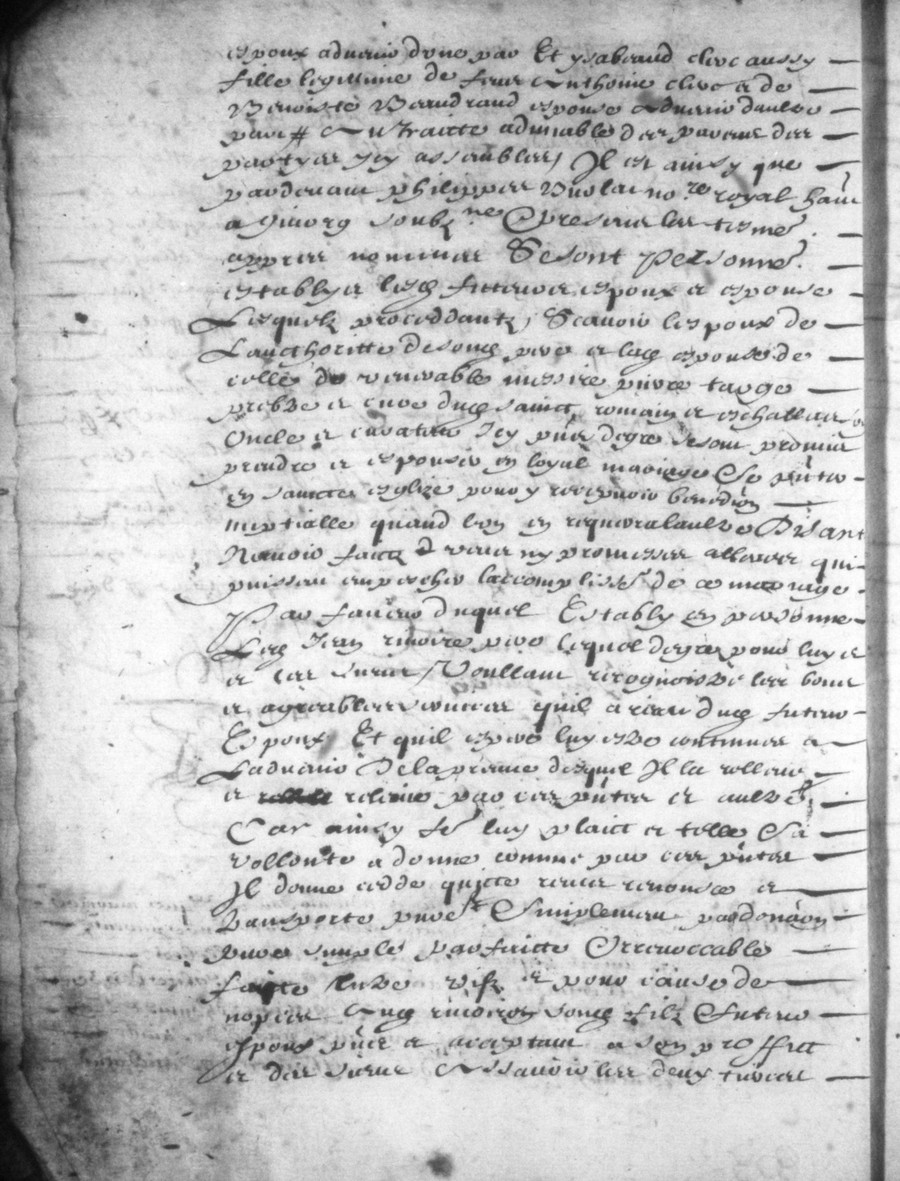 espoux advenir d'une part Et ysabeaud clerc aussy
fille legitime de feu Anthoine clerc et de
Benoiste Beaudrand espouse advenir d'aultre
part # En traitte admiable des parens des
partyes icy assembles Il est ainsy que
pardevant philippes no.re royal
a Givors soubz.ne Et presens les tesmé
appres nommes Se sont Personné
establys lesd futteurs espoux et espouse
Lesquelz proceddantz, Scavoir lespoux de
Laucthoritte de son pere et lad espouse de
celle de venerable messire pierre
prebtre et cure dud sainct romain et eschallas
Oncle et curateur Icy pnt degre se sont promis
prendre et espouser en loyal mariage Se pnter
en saincte esglize pour y recepvoir benedion
nuptialle quand lun en requerra laultre Disant
Navoir faict veux ny promesses allieurs qui
puissent empescher laccomplissé de ce mariage
Par faveur duquel Estably en personne
Led Jean pere lequel degre pour luy et
et les siens Voullant recognoistre les bons
et agreables services quil a receu dud futeur
Espoux Et quil espere luy estre continues a
Ladvenir De la preuve desquel Il la relleve
et releve par ces pntes et aultré
Car ainsy Se luy plaict et telle Sa
vollonte a donne comme par ces pntes
Il donne cedde quicte remet renonce et
transporte pure Simplement par donaon
pure simple parfaicte Irrevoccable
faicte entre vifz et pour cause de
nopces Aud son filz Futeur
espoux pnt et aceptant a son proffict
et des siens Assavoir les deux tierces